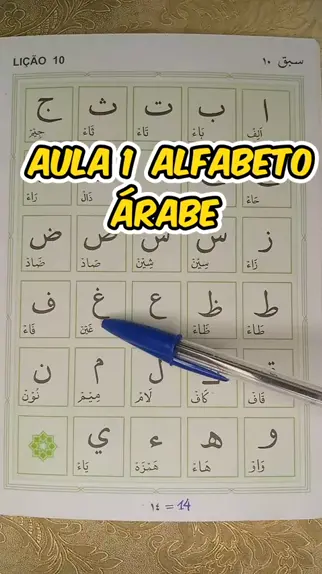 LIÇÃO 10 سبق ١٠
ا ب ت ث ج
اَلِفْ بَاءْ تَاءْ ثَاءْ جِيْمْ
AULA 1 ALFABETO
ÁRABE
حَاءْ ذَالْ رَاءْ
ز س ش ص ض
زَاءْ سِيْنْ شِيْنْ صَادْ ضَادْ
ط ظ ع غ ف
طَاءْ ظَاءْ غَيْنْ فَاءْ
ق ل م ن
قَافْ كَافْ لَامْ مِيْمْ نُوْنْ
و ه ء ي
وَاوْ هَاءْ هَمْزَهْ يَاءْ
١٤ = 14